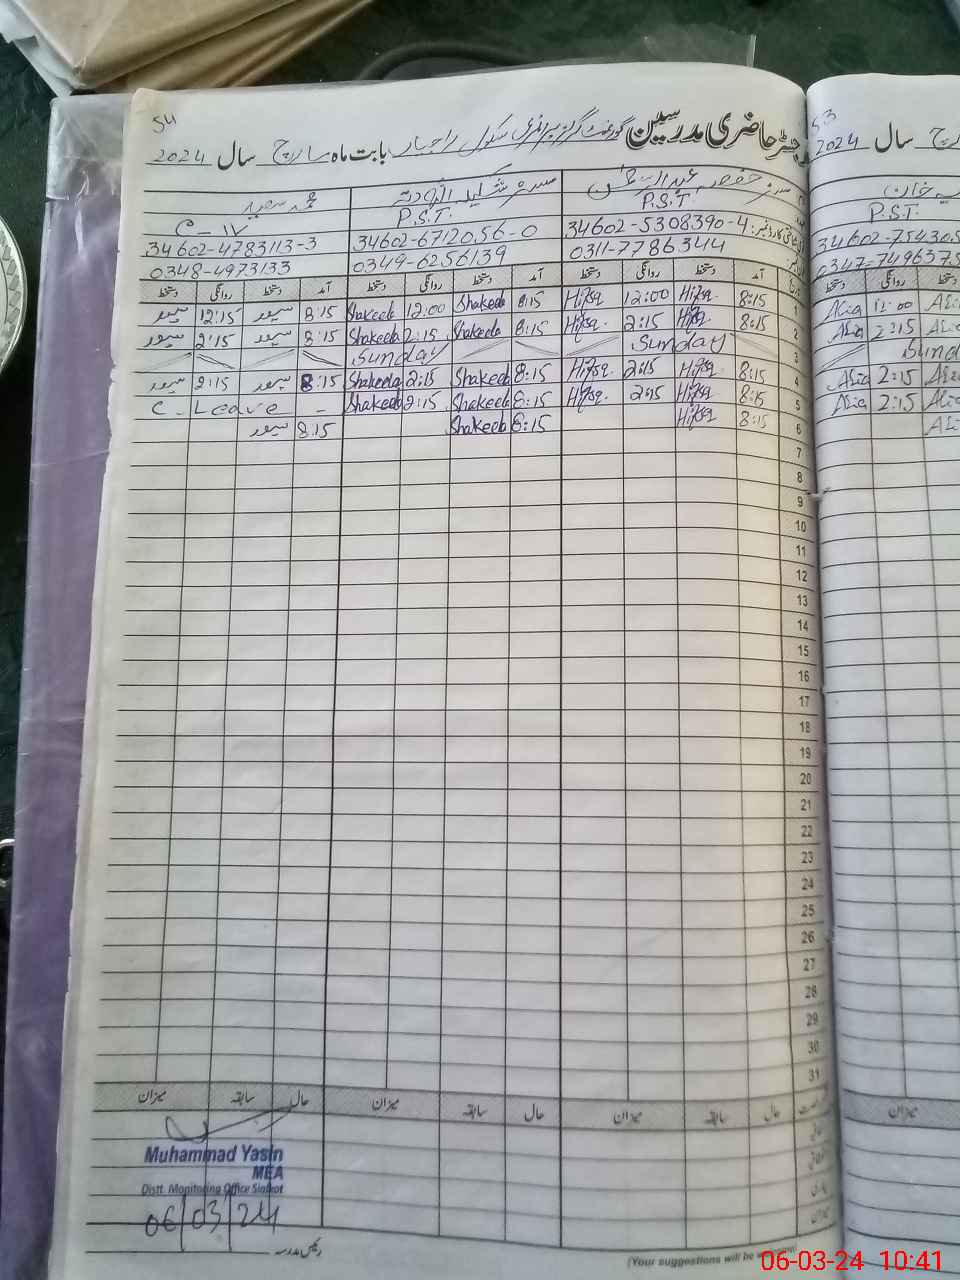 54
رجسٹر حاضری مدرسین گورنمنٹ گرلز پرائمری سکول راجیار بابت ماہ مارچ سال 2024
مسرہ حفصہ عبدالرحمٰن مسرہ شکیلہ محمد سعید
P.S.T. P.S.T. C-IV
34602-5308390-4 34602-6712056-0 34602-4783113-3
0311-7786344 0349-6256139 0348-4973133
آمد دستخط روانگی دستخط آمد دستخط روانگی دستخط آمد دستخط روانگی دستخط
1 8:15 Hifsa 12:00 Hifsa 8:15 Shakeela 12:00 Shakeela 8:15 12:15
2 8:15 Hifsa 2:15 Hifsa 8:15 Shakeela 2:15 Shakeela 8:15 2:15
3 Sunday Sunday
4 8:15 Hifsa 2:15 Hifsa 8:15 Shakeela 2:15 Shakeela 8:15 2:15
5 8:15 Hifsa 2:15 Hifsa 8:15 Shakeela 2:15 Shakeela C-Leave
6 8:15 Hifsa 8:15 Shakeela 8:15
7
8
9
10
11
12
13
14
15
16
17
18
19
20
21
22
23
24
25
26
27
28
29
30
31
حال سابقہ میزان حال سابقہ میزان حال سابقہ میزان
Muhammad Yasin
MEA
Distt. Monitoring Office Sialkot
06/03/24
رئیس مدرسہ
(Your suggestions will be
53
سال 2024
خان
P.S.T.
34602-75430
0347-749637
روانگی دستخط
Alia 12:00
Alia 2:15
Sund
Alia 2:15
Alia 2:15
میزان
06-03-24 10:41